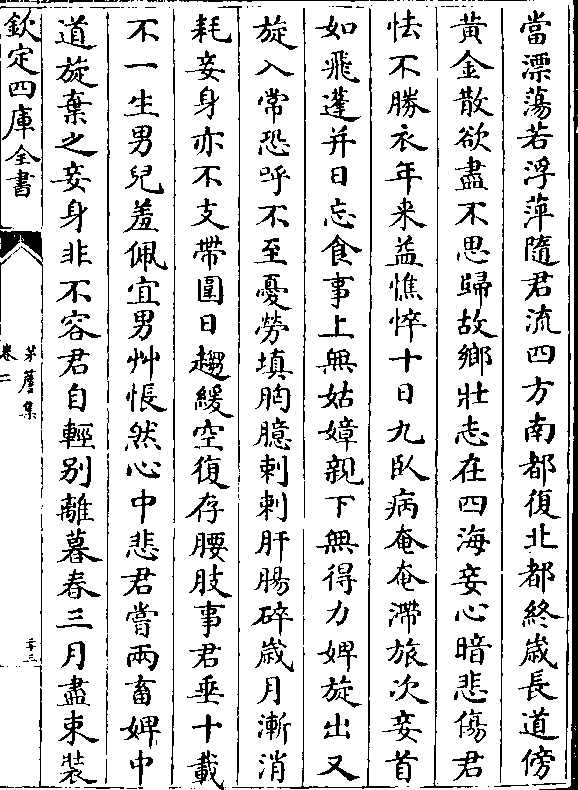 當漂蕩若浮萍隨君流四方南都復北都終歲長道傍
黃金散欲盡不思歸故鄉壯志在四海妾心暗悲傷君
怯不勝衣年来益憔悴十日九臥病奄奄滯旅次妾首
如飛蓬并日忘食事上無姑嫜親下無得力婢旋出又
旋入常恐呼不至憂勞填胸臆刺刺肝腸碎歲月漸消
耗妾身亦不支帶圍日趨緩空復存腰肢事君垂十載
不一生男兒羞佩宜男艸悵然心中悲君嘗兩畜婢中
道旋棄之妾身非不容君自輕别離暮春三月盡束装
欽定四庫全書
茅簷集
卷二
二十三